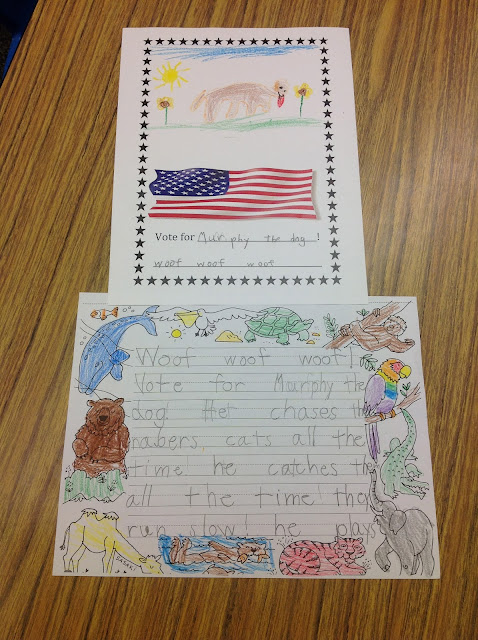 Vote for Muirphy the dog !
woof woof woof
Woof woof woof!
Vote for Muirphy the
dog Het chases the
nabers cats all the
time! he catches the
all the time! they
run slow! he plays
SASAKI